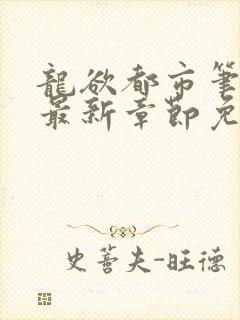 龍欲都市筆
最新章節免
史蒼夫-旺德